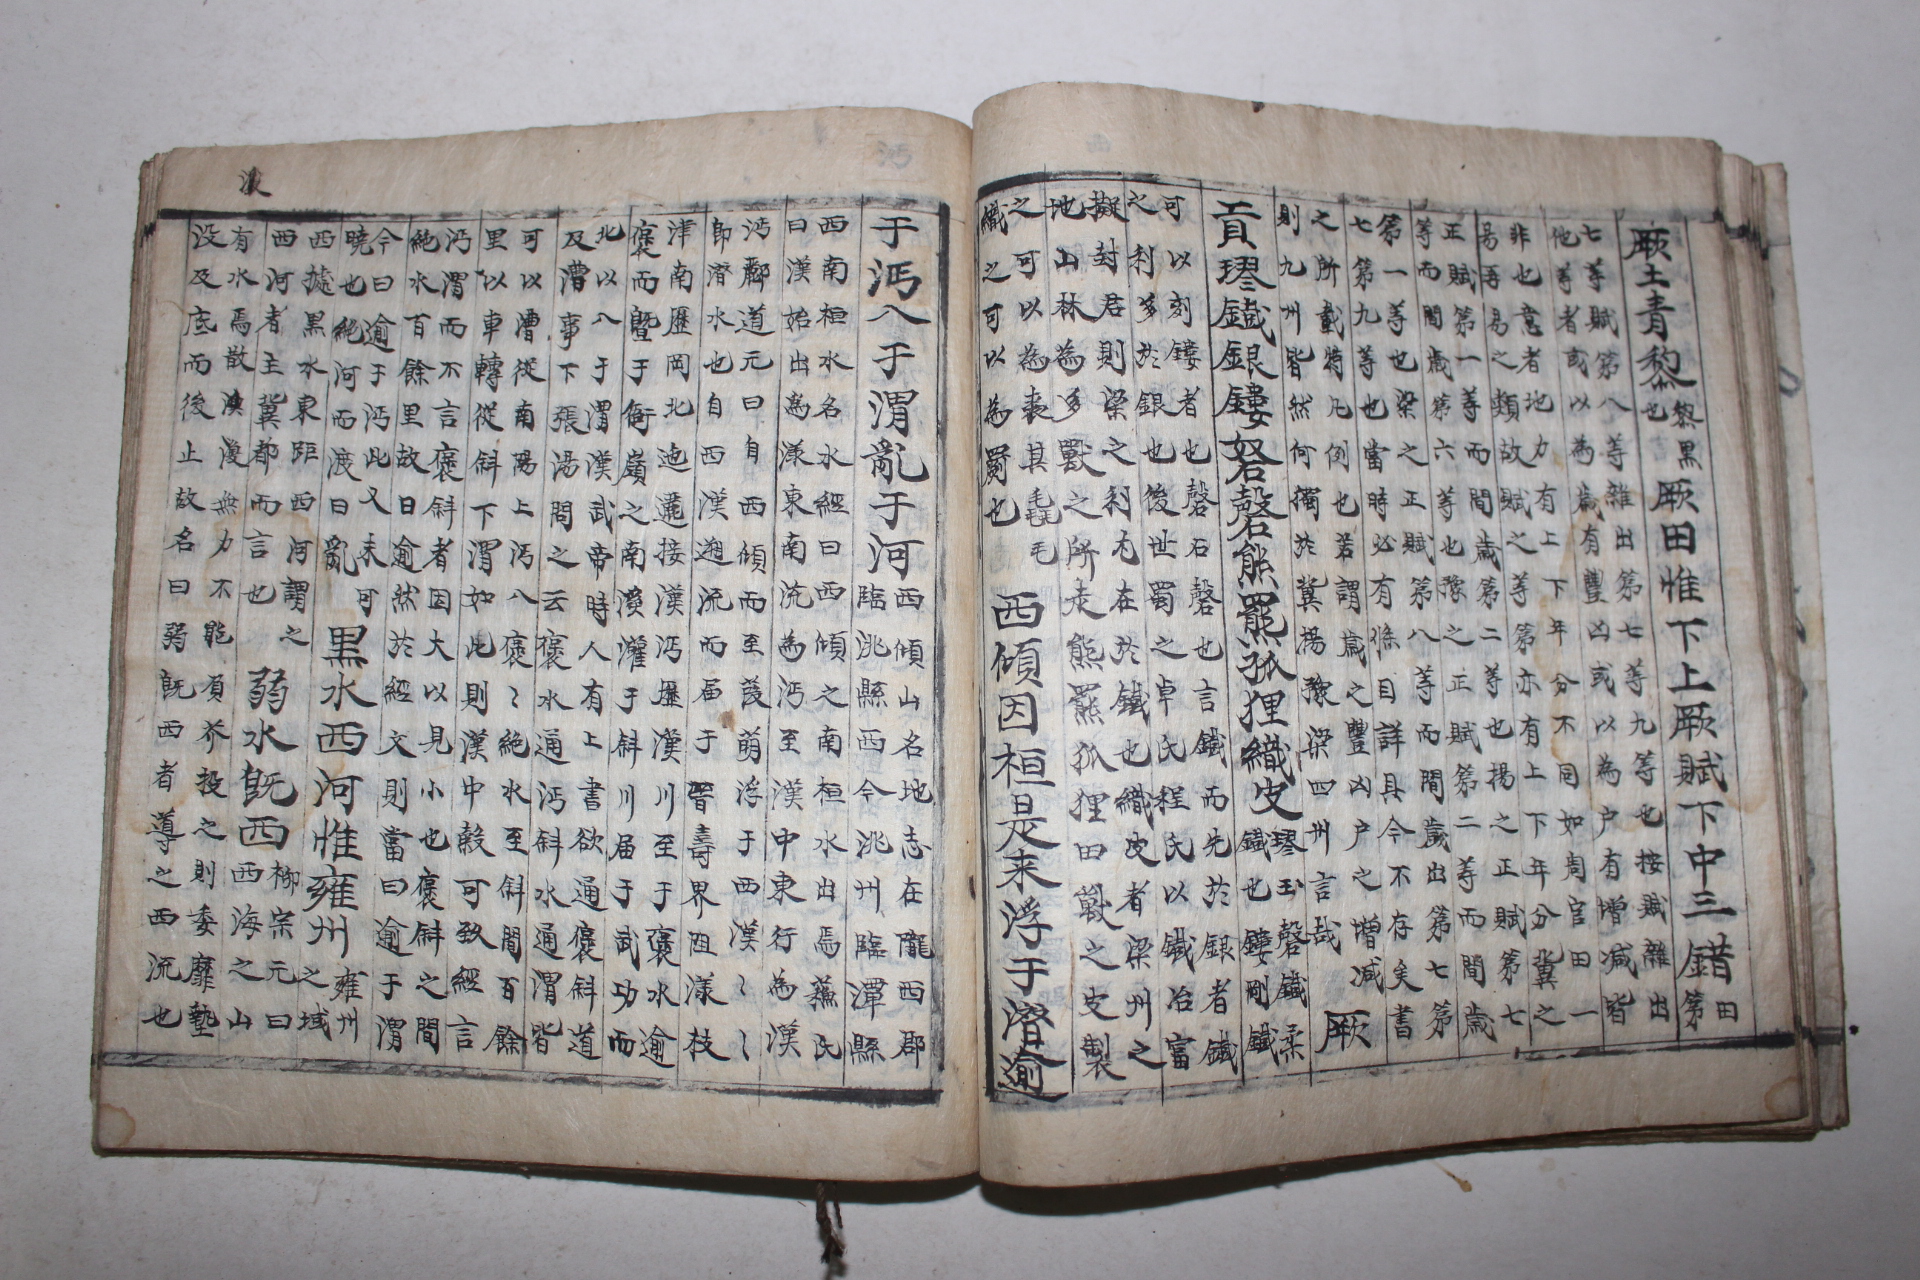 厥土青黎黎黑也厥田惟下上厥賦下中三錯田第
七等賦第八等雜出第七等九等也按賦雜出
他等者或以為歲有豐凶或以為户有增减皆
非也意者地力有上下年分不同如周官田一
易再易之類故賦之等第亦有上下年分冀之
正賦第一等而間歲第二等也揚之正賦第七
等而間歲第六等也豫之正賦第二等而間歲
第一等也梁之正賦第八等而間歲出第七第
九等也當時必有條目詳具今不存矣書
之所載特凡例也若謂歲之豐凶户之增减
則九州皆然何獨於冀揚豫梁四州言哉厥
貢璆鐵銀鏤砮磬熊羆狐狸織皮璆玉磬鐵柔鐵也鏤剛鐵
可以刻鏤者也磬石磬也言鐵而先於銀者鐵
之利多於銀也後世蜀之卓氏程氏以鐵冶富
擬封君則梁之利尤在於鐵也織皮者梁州之
地山林為多獸之所走熊羆狐狸四獸之皮製
之可以為裘其毳毛
織之可以為罽也西傾因桓是来浮于潛逾
于沔入于渭亂于河西傾山名地志在隴西郡臨洮縣西今洮州臨潭縣
西南桓水名水經曰西傾之南桓水出焉蘇氏
曰漢始出為漾東南流為沔至漢中東行為漢
沔酈道元曰自西傾而至葭萌浮于西漢〻〻
即潛水也自西漢遡流而届于晉壽界阻漾枝
津南歷岡北迤邐接漢沔歷漢川至于褒水逾
褒而暨于衙嶺之南溪灌于斜川届于武功而
北以入于渭漢武帝時人有上書欲通褒斜道
及漕事下張湯問之云褒水通沔斜水通渭皆
可以漕從南陽上沔入褒〻絶水至斜間百餘
里以車轉從斜下渭如此則漢中穀可致經言
沔渭而不言褒斜者因大以見小也褒斜之間
絶水百餘里故曰逾然於經文則當曰逾于渭
今曰逾于沔此又未可
曉也絶河而渡曰亂黒水西河惟雍州雍州之域
西據黒水東距西河謂之
西河者主冀都而言也弱水旣西柳宗元曰西海之山
有水焉散渙漫無力不能負芥投之則委靡墊
没及底而後止故名曰弱旣西者導之西流也